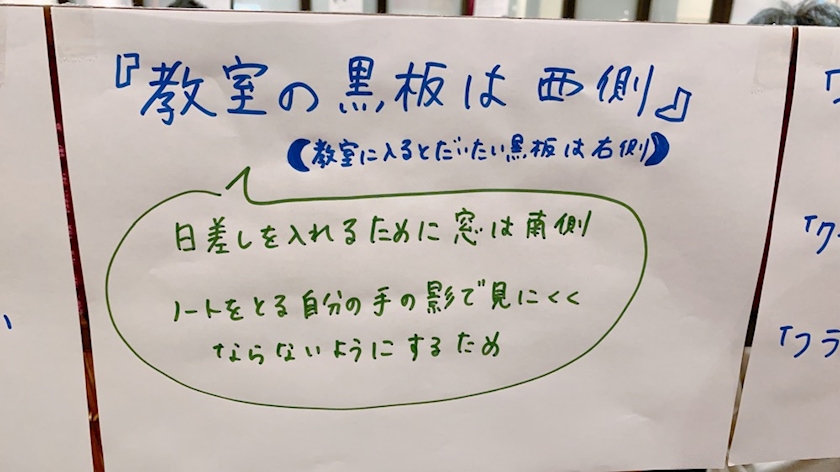 『教室の黒板は西側』
(教室に入るとだいたい黒板は右側)
日差しを入れるために窓は南側
ノートをとる自分の手の影で見にくく
ならないようにするため
「ク
「フラ